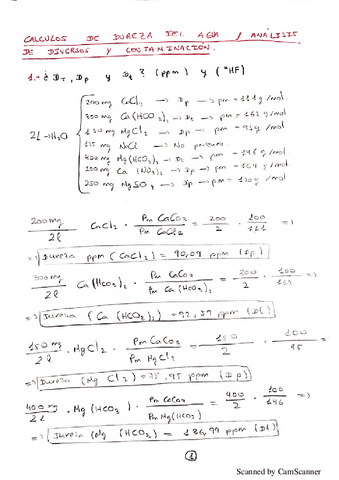 CALCULOS DE DUREZA DEL AGUA / ANÁLISIS
DE DIVERSOS Y CONTAMINACION.
1.- ¿ DT, Dp y Dt ? (ppm) y (°HF)
2L → H2O
200 mg CaCl2 → Dp → pm = 111 g/mol.
300 mg Ca(HCO3)2 → Dt → pm = 162 g/mol
150 mg MgCl2 → Dp → pm = 95 g/mol
125 mg NaCl → No
400 mg Mg(HCO3)2 → Dt → pm = 146 g/mol
100 mg Ca(NO3)2 → Dp → pm = 164 g/mol
250 mg MgSO4 → Dp → pm = 120 g/mol
200 mg / 2l CaCl2 · Pm CaCO3 / Pm CaCl2 = 200 / 2 · 100 / 111 =>
=> Dureza ppm (CaCl2) = 90,09 ppm (Dp)
300 mg / 2l Ca(HCO3)2 · Pm CaCO3 / Pm Ca(HCO3)2 = 300 / 2 · 100 / 162 =>
=> Dureza (Ca(HCO3)2) = 92,59 ppm (Dt)
150 mg / 2l · MgCl2 · Pm CaCO3 / Pm MgCl2 = 150 / 2 · 100 / 95 =
=> Dureza (MgCl2) = 78,95 ppm (Dp)
400 mg / 2l · Mg(HCO3)2 · Pm CaCO3 / Pm Mg(HCO3)2 = 400 / 2 · 100 / 146 =>
=> Dureza (Mg(HCO3)2) = 136,99 ppm (Dt)
1
Scanned by CamScanner